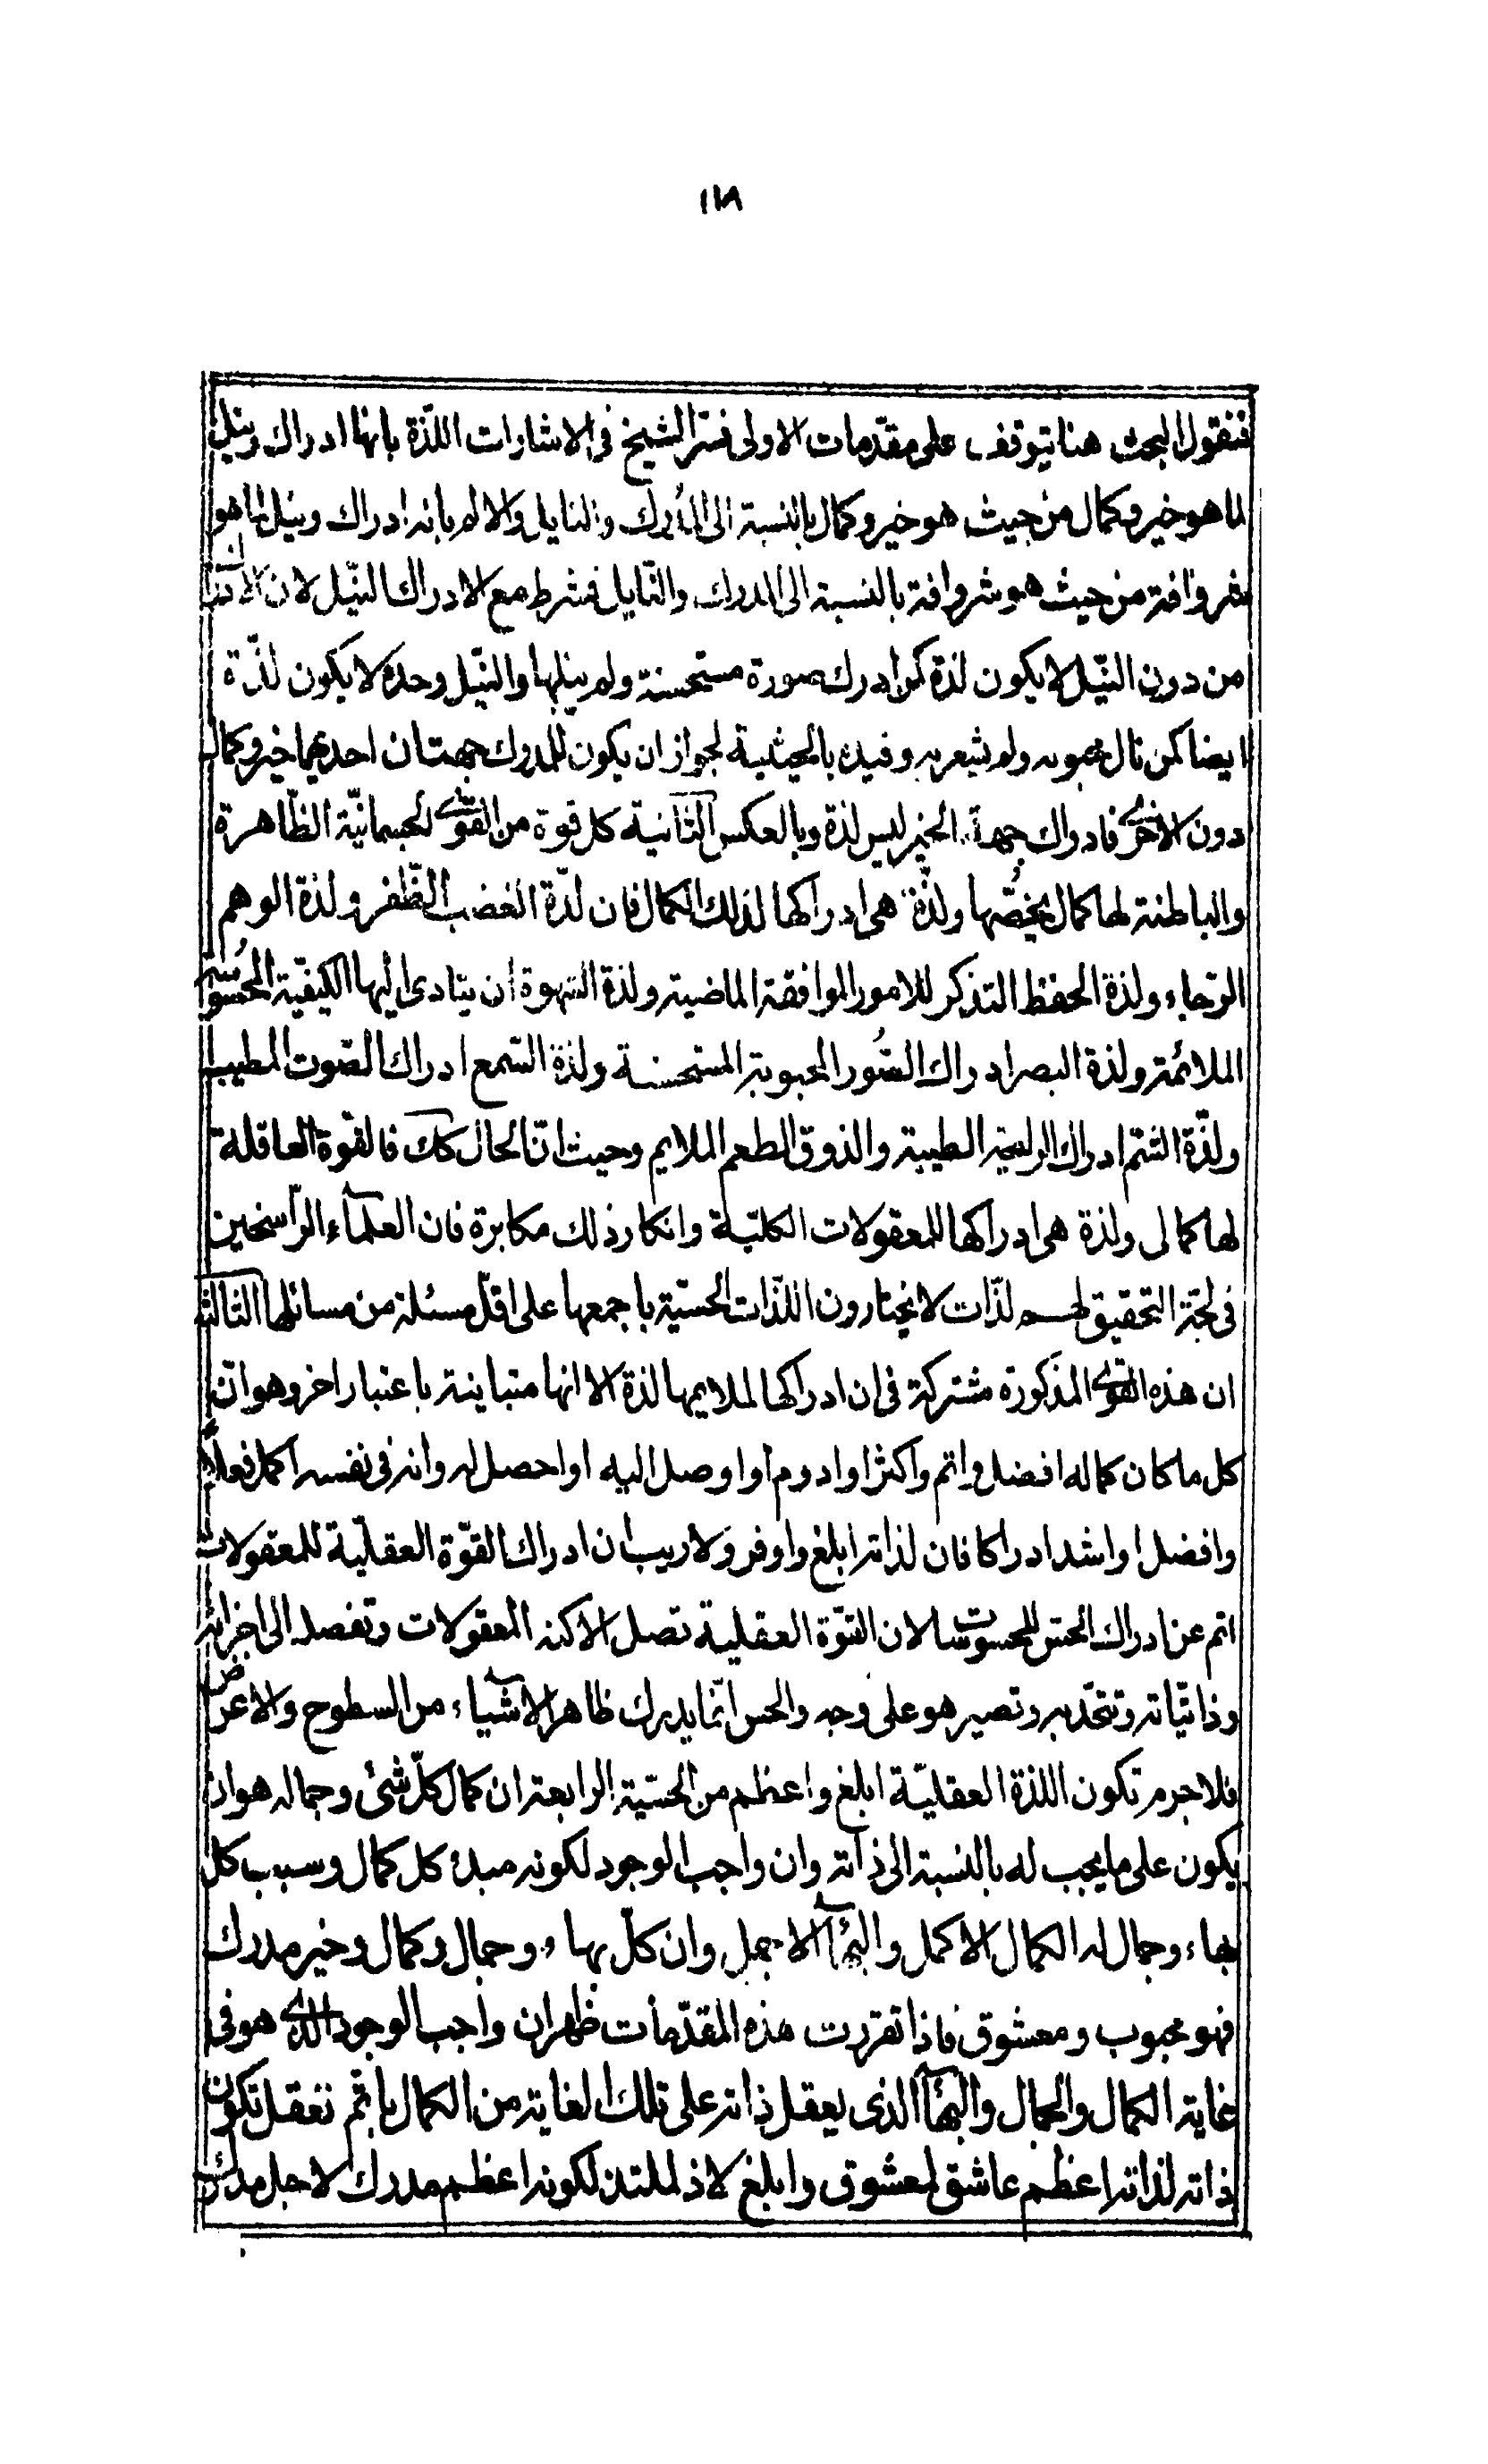 ١١٨
فنقول البحث هنا يتوقف على مقدّمات الاولى فسّر الشيخ فى الاشارات اللذّة بانها ادراك ونيل
لما هو خير وكمال من حيث هو خير وكمال بالنسبة الى المدرك والنايل والالم بانه ادراك ونيل لما هو
شر وافة من حيث هو شر وافة بالنسبة الى المدرك والنّايل فشرط مع الادراك النّيل لان الادراك
من دون النّيل لا يكون لذة كمن ادرك صورة مستحسنة ولم ينلها والنّيل وحده لا يكون لذّة
ايضا كمن نال محبوبه ولم يشعر به وقيده بالحيثية لجواز ان يكون للمدرك جهتان احديهما خير وكمال
دون الاخرى فادراك جهة الخير ليس لذة وبالعكس الثانية كل قوة من القوى الجسمانيّة الظّاهرة
والباطنة لها كمال يخصّها ولذّة هى ادراكها لذلك الكمال فان لذّة الغضب الظّفر ولذة الوهم
الرّجاء ولذة الحفظ التذكر للامور الموافقة الماضية ولذة الشهوة ان يتادى اليها الكيفيّة المحسوسة
الملائمة ولذة البصر ادراك الصُّور المحبوبة المستحسنة ولذة السّمع ادراك الصّوت المطيب
ولذّة الشّم ادراك الرايحة الطيبة والذوق الطعم الملايم وحيث انّ الحال كك فالقوّة العاقلة
لها كمالى ولذة هى ادراكها للمعقولات الكليّة وانكار ذلك مكابرة فان العلماء الرّاسخين
فى لجّة التحقيق لهم لذّات لا يختارون اللذّات الحسّيّة باجمعها على اقلّ مسئلة من مسائلها الثالثة
ان هذه القوى المذكورة مشتركة فى ان ادراكها لملايمها لذة الا انها متباينة باعتبار اخر وهو انّ
كل ما كان كماله افضل واتم واكثر او ادوم او اوصل اليه او احصل له وانه فى نفسه اكمل فعلاً
وافضل او اشد ادراكا فان لذاته ابلغ واوفر ولا ريب ان ادراك القوّة العقليّة للمعقولات
اتم عن ادراك الحسّ للمحسوسات لان القوّة العقلية تصل الاكنه المعقولات وتفصله الى اجزائه
وذاتيّاته وتتحّد به وتصير هو على وجه والحس انّما يدرك ظاهر الاشياء من السطوح والاعراض
فلا جرم تكون اللذة العقليّة ابلغ واعظم من الحسّيّة الرابعة ان كمال كلّ شئ وجماله هو ان
يكون على ما يجب له بالنسبة الى ذاته وان واجب الوجود لكونه مبدئ كل كمال وسبب كل
بهاء وجمال له الكمال الاكمل والبهاء الاجمل وان كلّ بهاء وجمال وكمال وخير مدرك
فهو محبوب ومعشوق فاذا تقررت هذه المقدّمات ظهر ان واجب الوجود الذى هو فى
غاية الكمال والجمال والبهاء الذى يعقل ذاته على تلك الغاية من الكمال باتم تعقل تكون
ذاته لذاته اعظم عاشق لمعشوق وابلغ لاذ لملتذ لكونه اعظم مدرك لاجل مدرك